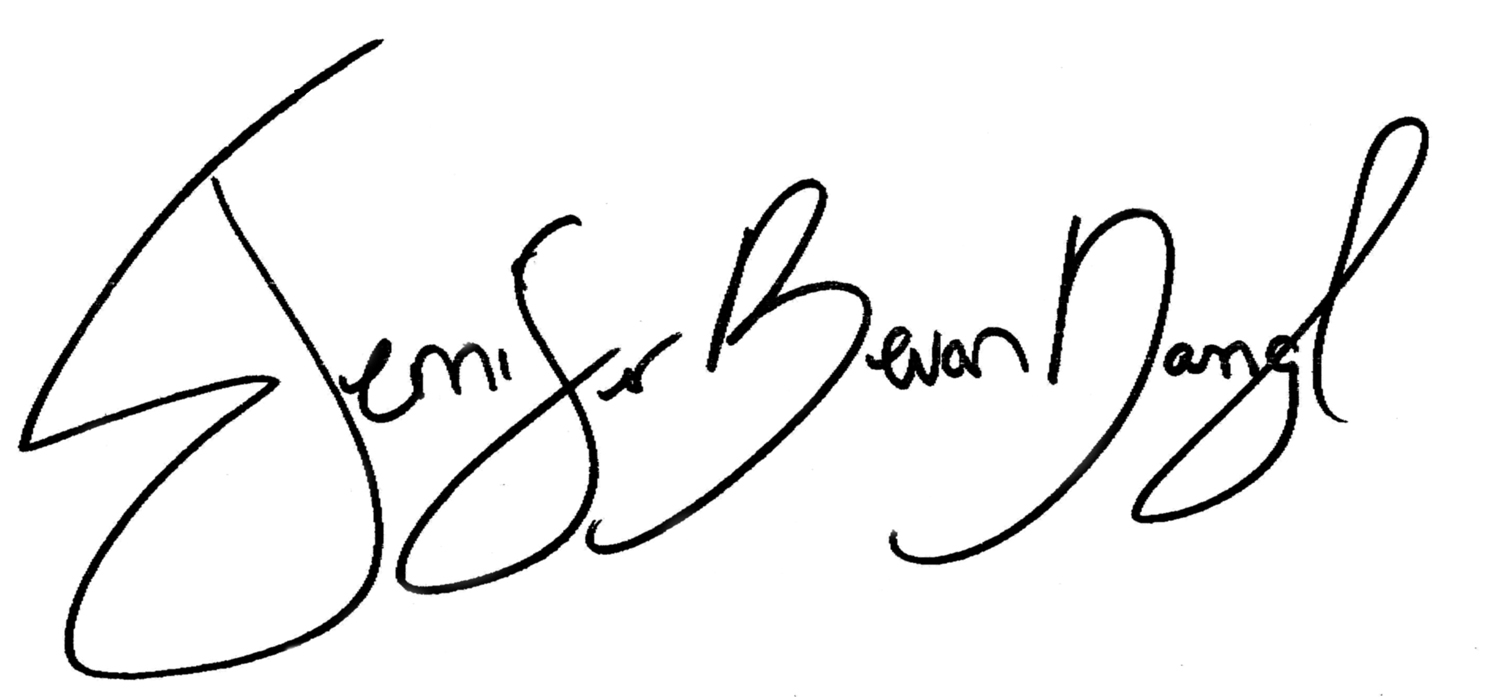 Jennifer Bevan Dangl